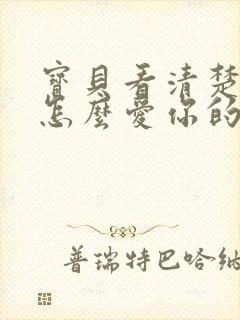 寶貝看清楚
怎麼愛你的
普瑞特巴哈納